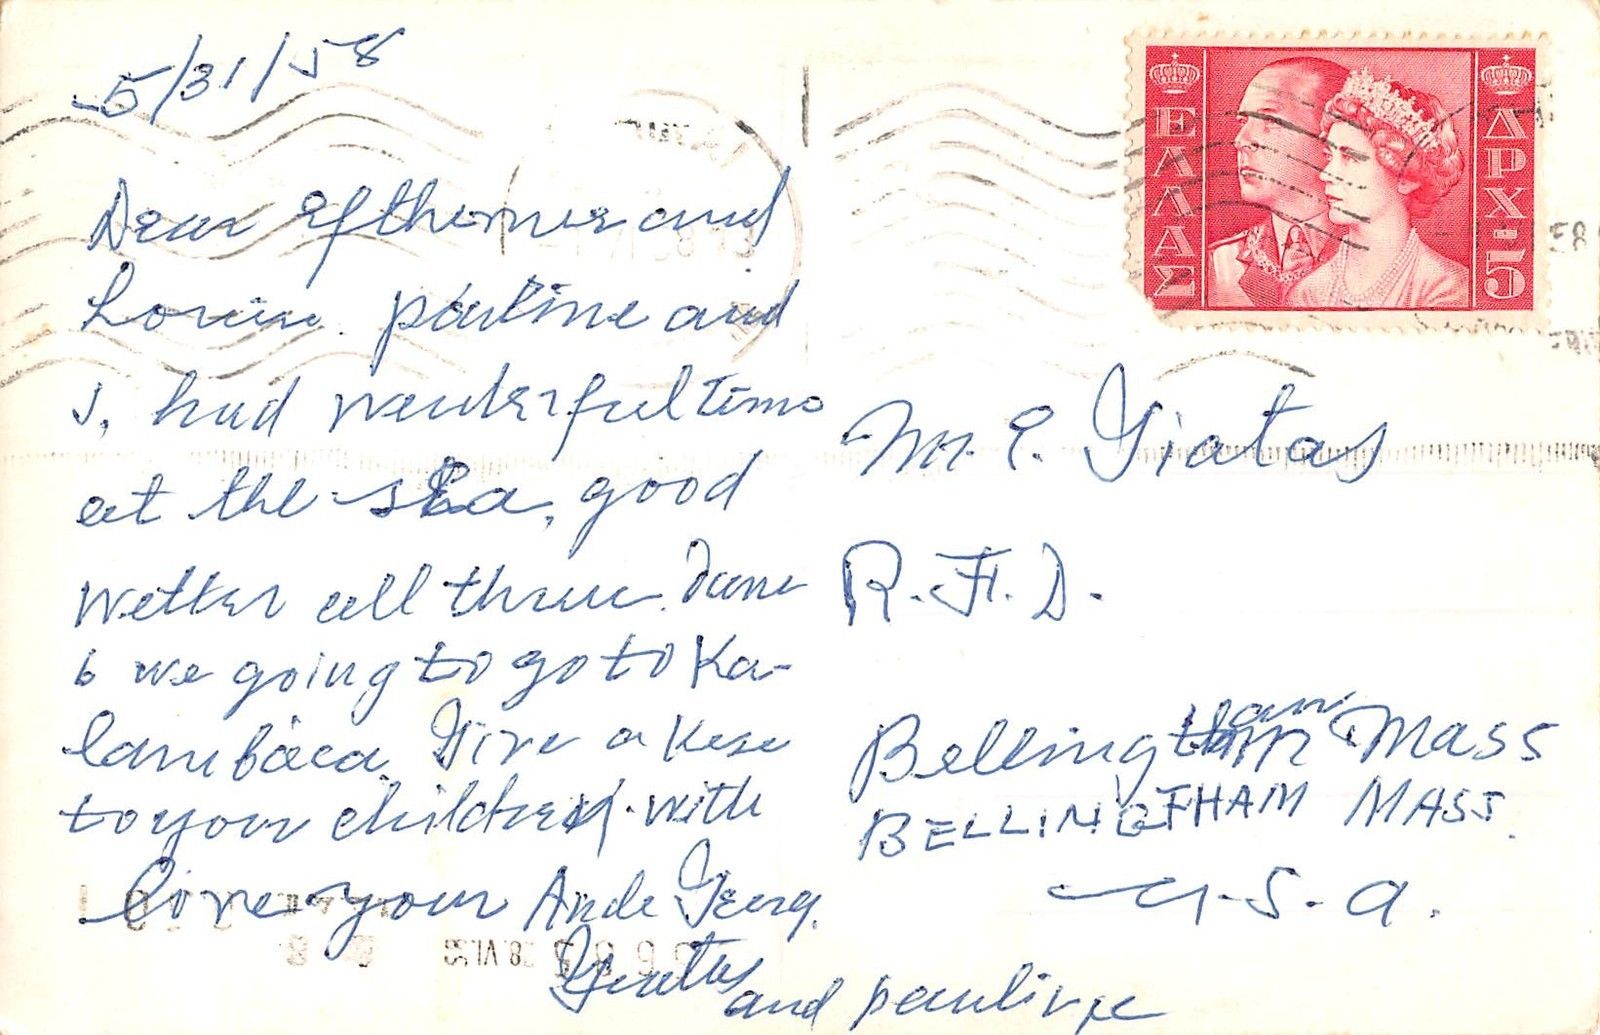 5/31/58
Dear Efthemie and
Louise. pauline and
I, had wenderful time
at the sea, good
wetter all three. June
6 we going to go to Ka-
lambaca. Give a kese
to your children. with
love your Ancle Georg.
Giatas
and pauline
ΕΛΛΑΣ
ΔΡΧ-5
Mr. E. Giatas
R.F.D.
Bellingham Mass
BELLINGHAM MASS.
U.S.A.